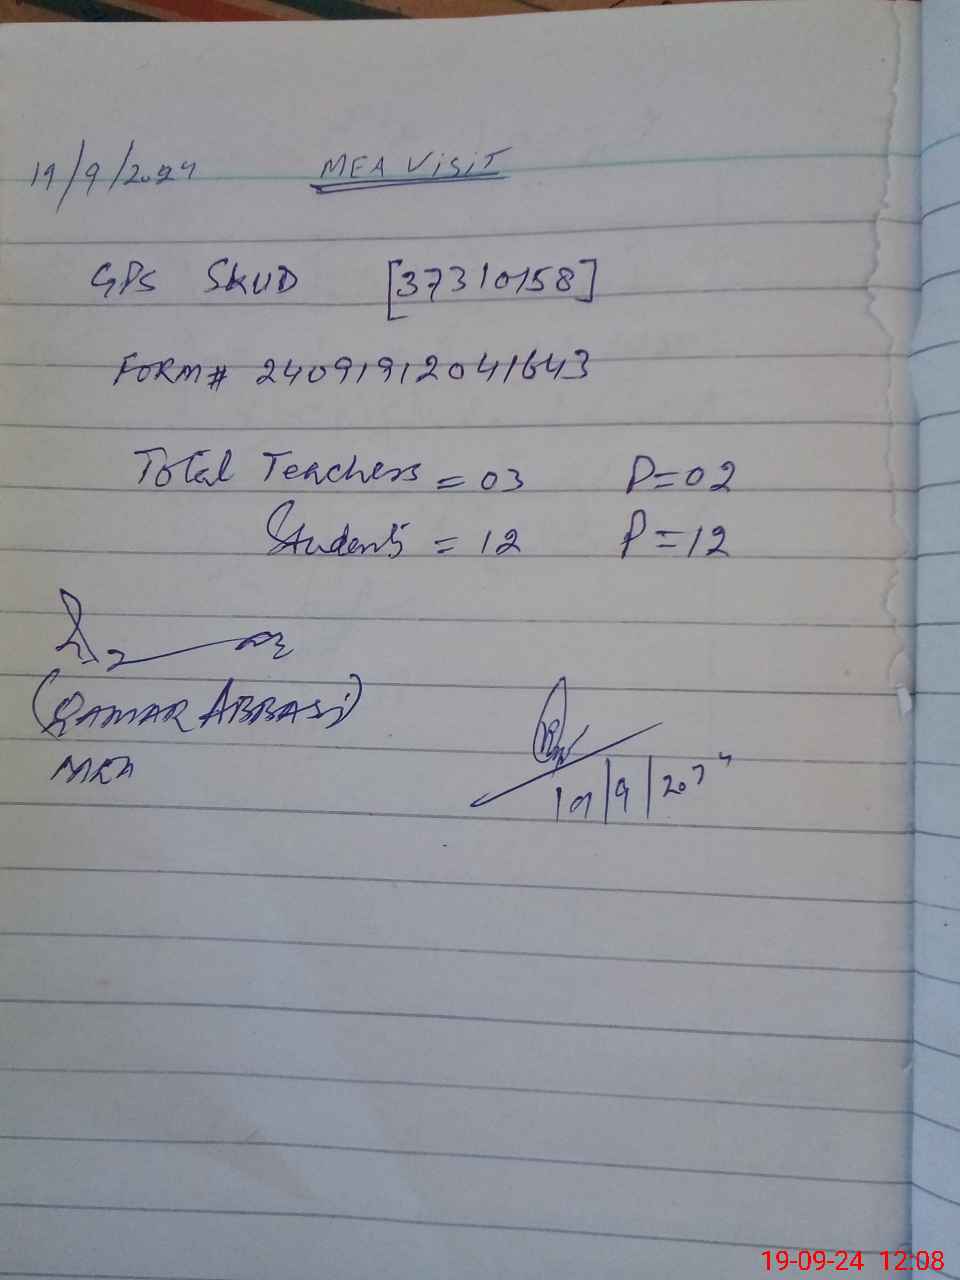 19/9/2024 MEA Visit
GPS SKUD [37310158]
FORM# 24091912041643
Total Teachers = 03 P=02
Students = 12 P=12
(QAMAR ABBASi)
MEA
19/9/2024
19-09-24 12:08